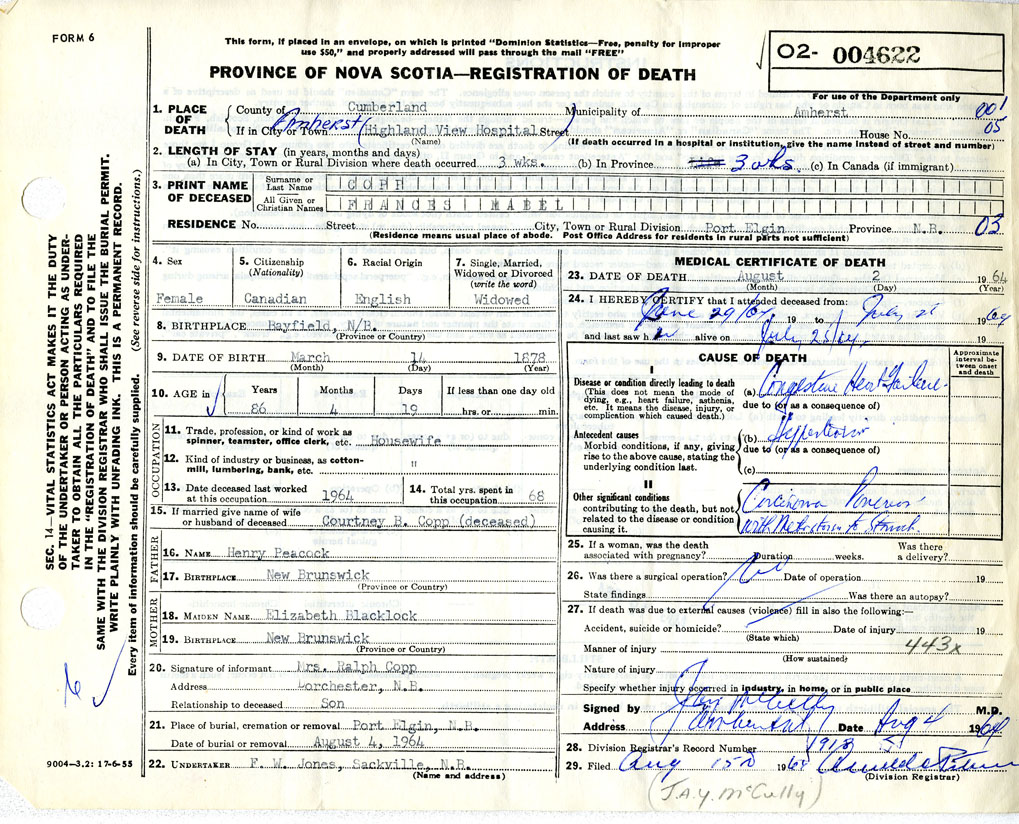 FORM 6
This form, if placed in an envelope, on which is printed "Dominion Statistics—Free, penalty for improper
use $50," and properly addressed will pass through the mail "FREE"
PROVINCE OF NOVA SCOTIA—REGISTRATION OF DEATH
02- 004622
For use of the Department only
001
05
1. PLACE OF DEATH
County of Cumberland Municipality of Amherst
If in City or Town Amherst (Highland View Hospital) Street House No.
(Name) (If death occurred in a hospital or institution, give the name instead of street and number)
2. LENGTH OF STAY (in years, months and days)
(a) In City, Town or Rural Division where death occurred 3 wks. (b) In Province 3 wks (c) In Canada (if immigrant)
3. PRINT NAME OF DECEASED
Surname or Last Name COPP
All Given or Christian Names FRANCES MABEL
RESIDENCE No. Street City, Town or Rural Division Port Elgin Province N.B. 03
(Residence means usual place of abode. Post Office Address for residents in rural parts not sufficient)
4. Sex
Female
5. Citizenship
(Nationality)
Canadian
6. Racial Origin
English
7. Single, Married,
Widowed or Divorced
(write the word)
Widowed
8. BIRTHPLACE Bayfield, N/B.
(Province or Country)
9. DATE OF BIRTH March 14 1878
(Month) (Day) (Year)
10. AGE in Years Months Days If less than one day old
86 4 19 hrs. or min.
OCCUPATION
11. Trade, profession, or kind of work as
spinner, teamster, office clerk, etc. Housewife
12. Kind of industry or business, as cotton-
mill, lumbering, bank, etc. "
13. Date deceased last worked
at this occupation 1964
14. Total yrs. spent in
this occupation 68
15. If married give name of wife
or husband of deceased Courtney B. Copp (deceased)
FATHER
16. NAME Henry Peacock
17. BIRTHPLACE New Brunswick
(Province or Country)
MOTHER
18. MAIDEN NAME Elizabeth Blacklock
19. BIRTHPLACE New Brunswick
(Province or Country)
20. Signature of informant Mrs. Ralph Copp
Address Dorchester, N.B.
Relationship to deceased Son
21. Place of burial, cremation or removal Port Elgin, N.B.
Date of burial or removal August 4, 1964
22. UNDERTAKER F. W. Jones, Sackville, N.B.
(Name and address)
MEDICAL CERTIFICATE OF DEATH
23. DATE OF DEATH August 2 1964
(Month) (Day) (Year)
24. I HEREBY CERTIFY that I attended deceased from:
June 29/64 19 to July 1964
and last saw h alive on July 25/64 19
CAUSE OF DEATH
Approximate
interval be-
tween onset
and death
I
Disease or condition directly leading to death
(This does not mean the mode of
dying, e.g., heart failure, asthenia,
etc. It means the disease, injury, or
complication which caused death.)
(a) Congestive Heart Failure
due to (or as a consequence of)
Antecedent causes
Morbid conditions, if any, giving
rise to the above cause, stating the
underlying condition last.
(b) Hypertension
due to (or as a consequence of)
(c)
II
Other significant conditions
contributing to the death, but not
related to the disease or condition
causing it.
Carcinoma Pancreas
with Metastasis to Stomach
25. If a woman, was the death
associated with pregnancy? Duration weeks. Was there
a delivery?
26. Was there a surgical operation? Date of operation 19
State findings Was there an autopsy?
27. If death was due to external causes (violence) fill in also the following:—
Accident, suicide or homicide? Date of injury 19
(State which)
Manner of injury 443x
(How sustained)
Nature of injury
Specify whether injury occurred in industry, in home, or in public place
Signed by M.D.
Address Amherst Date Aug 4 1964
28. Division Registrar's Record Number
29. Filed Aug 15th 1964
(Division Registrar)
(J.A.Y. McCully)
SEC. 14—VITAL STATISTICS ACT MAKES IT THE DUTY
OF THE UNDERTAKER OR PERSON ACTING AS UNDER-
TAKER TO OBTAIN ALL THE PARTICULARS REQUIRED
IN THE "REGISTRATION OF DEATH" AND TO FILE THE
SAME WITH THE DIVISION REGISTRAR WHO SHALL ISSUE THE BURIAL PERMIT.
WRITE PLAINLY WITH UNFADING INK. THIS IS A PERMANENT RECORD.
Every item of information should be carefully supplied. (See reverse side for instructions.)
9004-3.2: 17-6-55